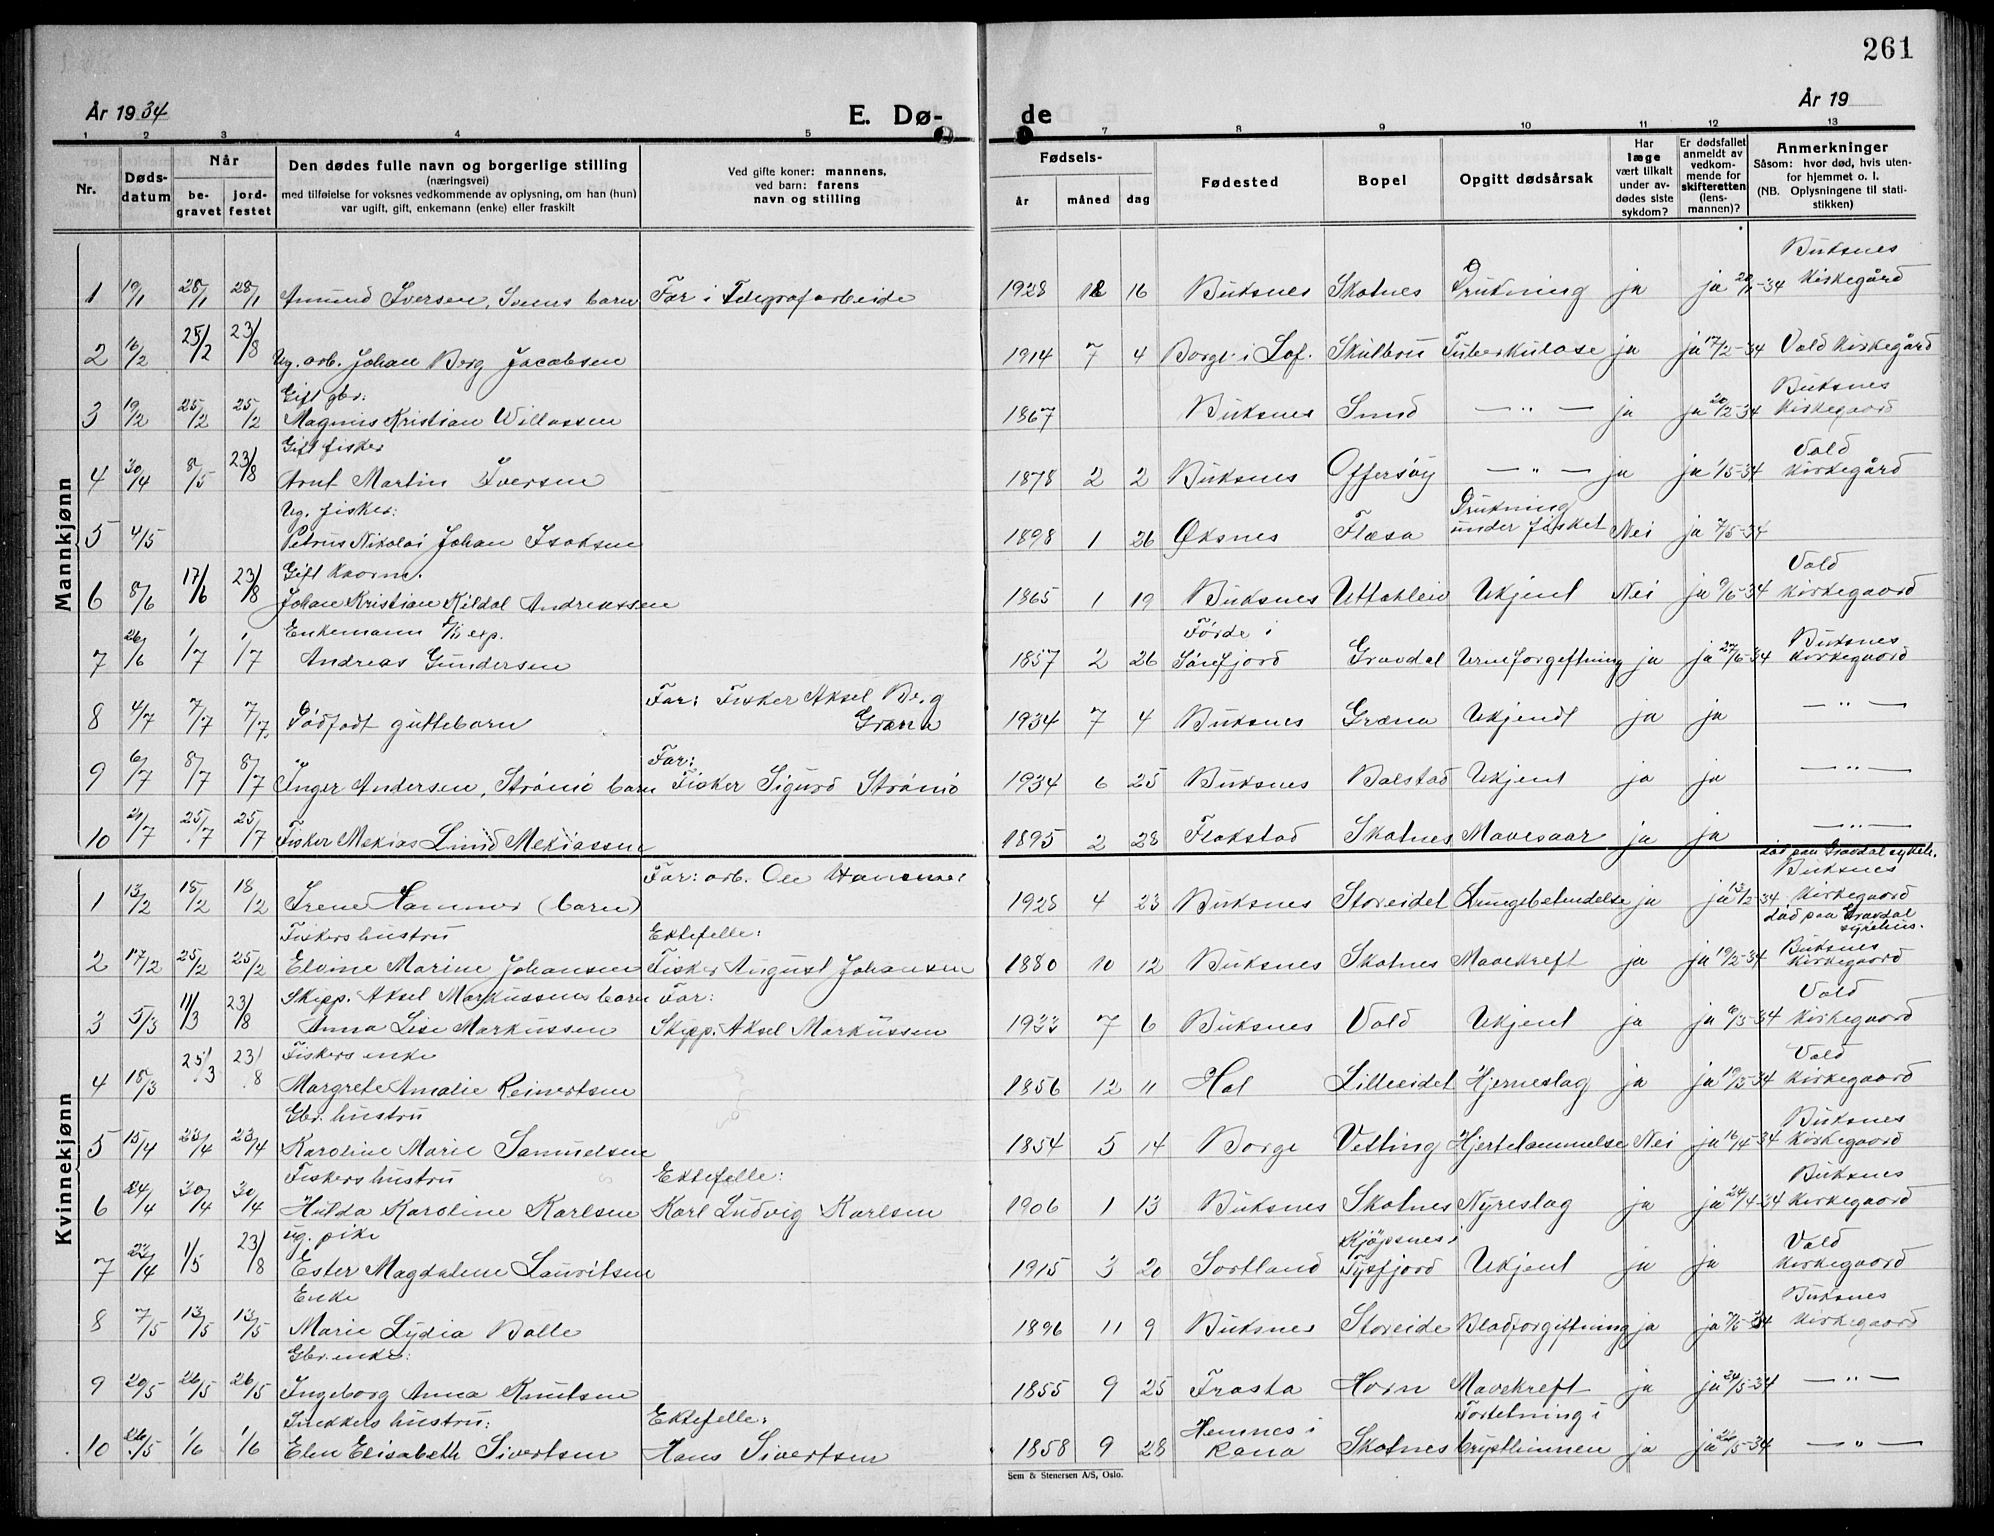 261
År 1934
E. Dø-
de
År 19
1 2 3 4 5 7 8 9 10 11 12 13
Nr.
Døds-
datum
Når
be-
gravet
jord-
festet
Den dødes fulle navn og borgerlige stilling
(næringsvei)
med tilføielse for voksnes vedkommende av oplysning, om han (hun)
var ugift, gift, enkemann (enke) eller fraskilt
Ved gifte koner: mannens,
ved barn: farens
navn og stilling
Fødsels-
år måned dag
Fødested
Bopel
Opgitt dødsårsak
Har
læge
vært tilkalt
under av-
dødes siste
sykdom?
Er dødsfallet
anmeldt av
vedkom-
mende for
skifteretten
(lens-
mannen)?
Anmerkninger
Såsom: hvor død, hvis uten-
for hjemmet o. l.
(NB. Oplysningene til stati-
stikken)
Mannkjønn
Buksnes
1 19/1 28/1 28/1 Amund Iversen, Svenns barn Far i Telegrafarbeide 1928 12 16 Buksnes Skotnes Drukning ja ja 20/1-34 Kirkegård
2 16/2 25/2 23/8 Ug. arb. Johan Berg Jacobsen 1914 7 4 Borge i Lof. Skulbru Tuberkulose ja ja 17/2-34 Vold Kirkegård
Gift gbr: Buksnes
3 19/2 25/2 25/2 Magnus Kristian Willassen 1867 Buksnes Sund — " — ja ja 20/2-34 Kirkegaard
Gift fisker Vold
4 30/4 8/5 23/8 Arnt Martin Iversen 1878 2 2 Buksnes Offersøy — " — ja ja 1/5-34 Kirkegård
Ug. fisker: Drukning
5 4/5 Petrus Nikolai Johan Isaksen 1898 1 26 Øksnes Flæsa under fisket Nei ja 7/5-34
Gift Vold
6 8/6 17/6 23/8 Johan Kristian Kildal Andreassen 1865 1 19 Buksnes Uttakleiv Ukjent Nei ja 9/6-34 Kirkegaard
Enkemann exp. Førde i Buksnes
7 26/6 1/7 1/7 Andreas Gundersen 1857 2 26 Sønfjord Gravdal Urinforgiftning ja ja 27/6-34 Kirkegaard
Far: Fisker Aksel Berg
8 4/7 7/7 7/7 Dødfødt guttebarn Græna 1934 7 4 Buksnes Græna Ukjendt ja ja — " —
Far:
9 6/7 8/7 8/7 Inger Andersen, Strømø barn Fisker Sigurd Strømø 1934 6 25 Buksnes Balstad Ukjent ja ja — " —
10 21/7 25/7 25/7 Fisker Mekias Lund Mekiassen 1895 2 28 Flakstad Skotnes Mavesaar ja ja — " —
død paa Gravdal sykeh.
Kvinnekjønn
Far: arb. Ole Hammer Buksnes
1 13/2 18/2 18/2 Irene Hammer (barn) 1928 4 23 Buksnes Storeidet Lungebetendelse ja ja 13/2-34 Kirkegaard
død paa Gravdal
sykehus.
Fiskers hustru Ektefelle: Buksnes
2 17/2 25/2 25/2 Elvine Marine Johansen Fisker August Johansen 1880 10 12 Buksnes Skotnes Mavekreft ja ja 19/2-34 Kirkegaard
Skipp. Aksel Markussens barn Far: Vold
3 5/3 11/3 23/8 Anna Lise Markussen Skipp. Aksel Markussen 1933 7 6 Buksnes Vold Ukjent ja ja 6/3-34 Kirkegaard
Fiskers enke Vold
4 18/3 25/3 23/8 Margrete Amalie Reinertsen 1856 12 11 Hol Lilleeidet Hjerneslag ja ja 19/3-34 Kirkegaard
Gbr. hustru Buksnes
5 15/4 23/4 23/4 Karoline Marie Samuelsen 1854 5 14 Borge Vetting Hjertelammelse Nei ja 16/4-34 Kirkegaard
Fiskers hustru Ektefelle: Buksnes
6 24/4 30/4 30/4 Hulda Karoline Karlsen Karl Ludvig Karlsen 1906 1 13 Buksnes Skotnes Nyreslag ja ja 24/4-34 Kirkegaard
ug. pike Kjøpsnes i Vold
7 23/4 1/5 23/8 Ester Magdalene Lauritsen 1915 3 20 Sortland Tysfjord Ukjent ja ja Kirkegaard
Enke Buksnes
8 7/5 13/5 13/5 Marie Lydia Balle 1896 11 9 Buksnes Storeide Blodforgiftning ja ja -34 Kirkegaard
Gbr. enke:
9 20/5 26/5 26/5 Ingeborg Anna Knutsen 1855 9 25 Frosta Horn Mavekreft ja ja 24/5-34 — " —
Snekkers hustru: Ektefelle: Hemnes i Fortetning i
10 26/5 1/6 1/6 Elen Elisabeth Sivertsen Hans Sivertsen 1858 9 28 Rana Skotnes brystlinnen ja ja -34 — " —
Sem & Stenersen A/S, Oslo.